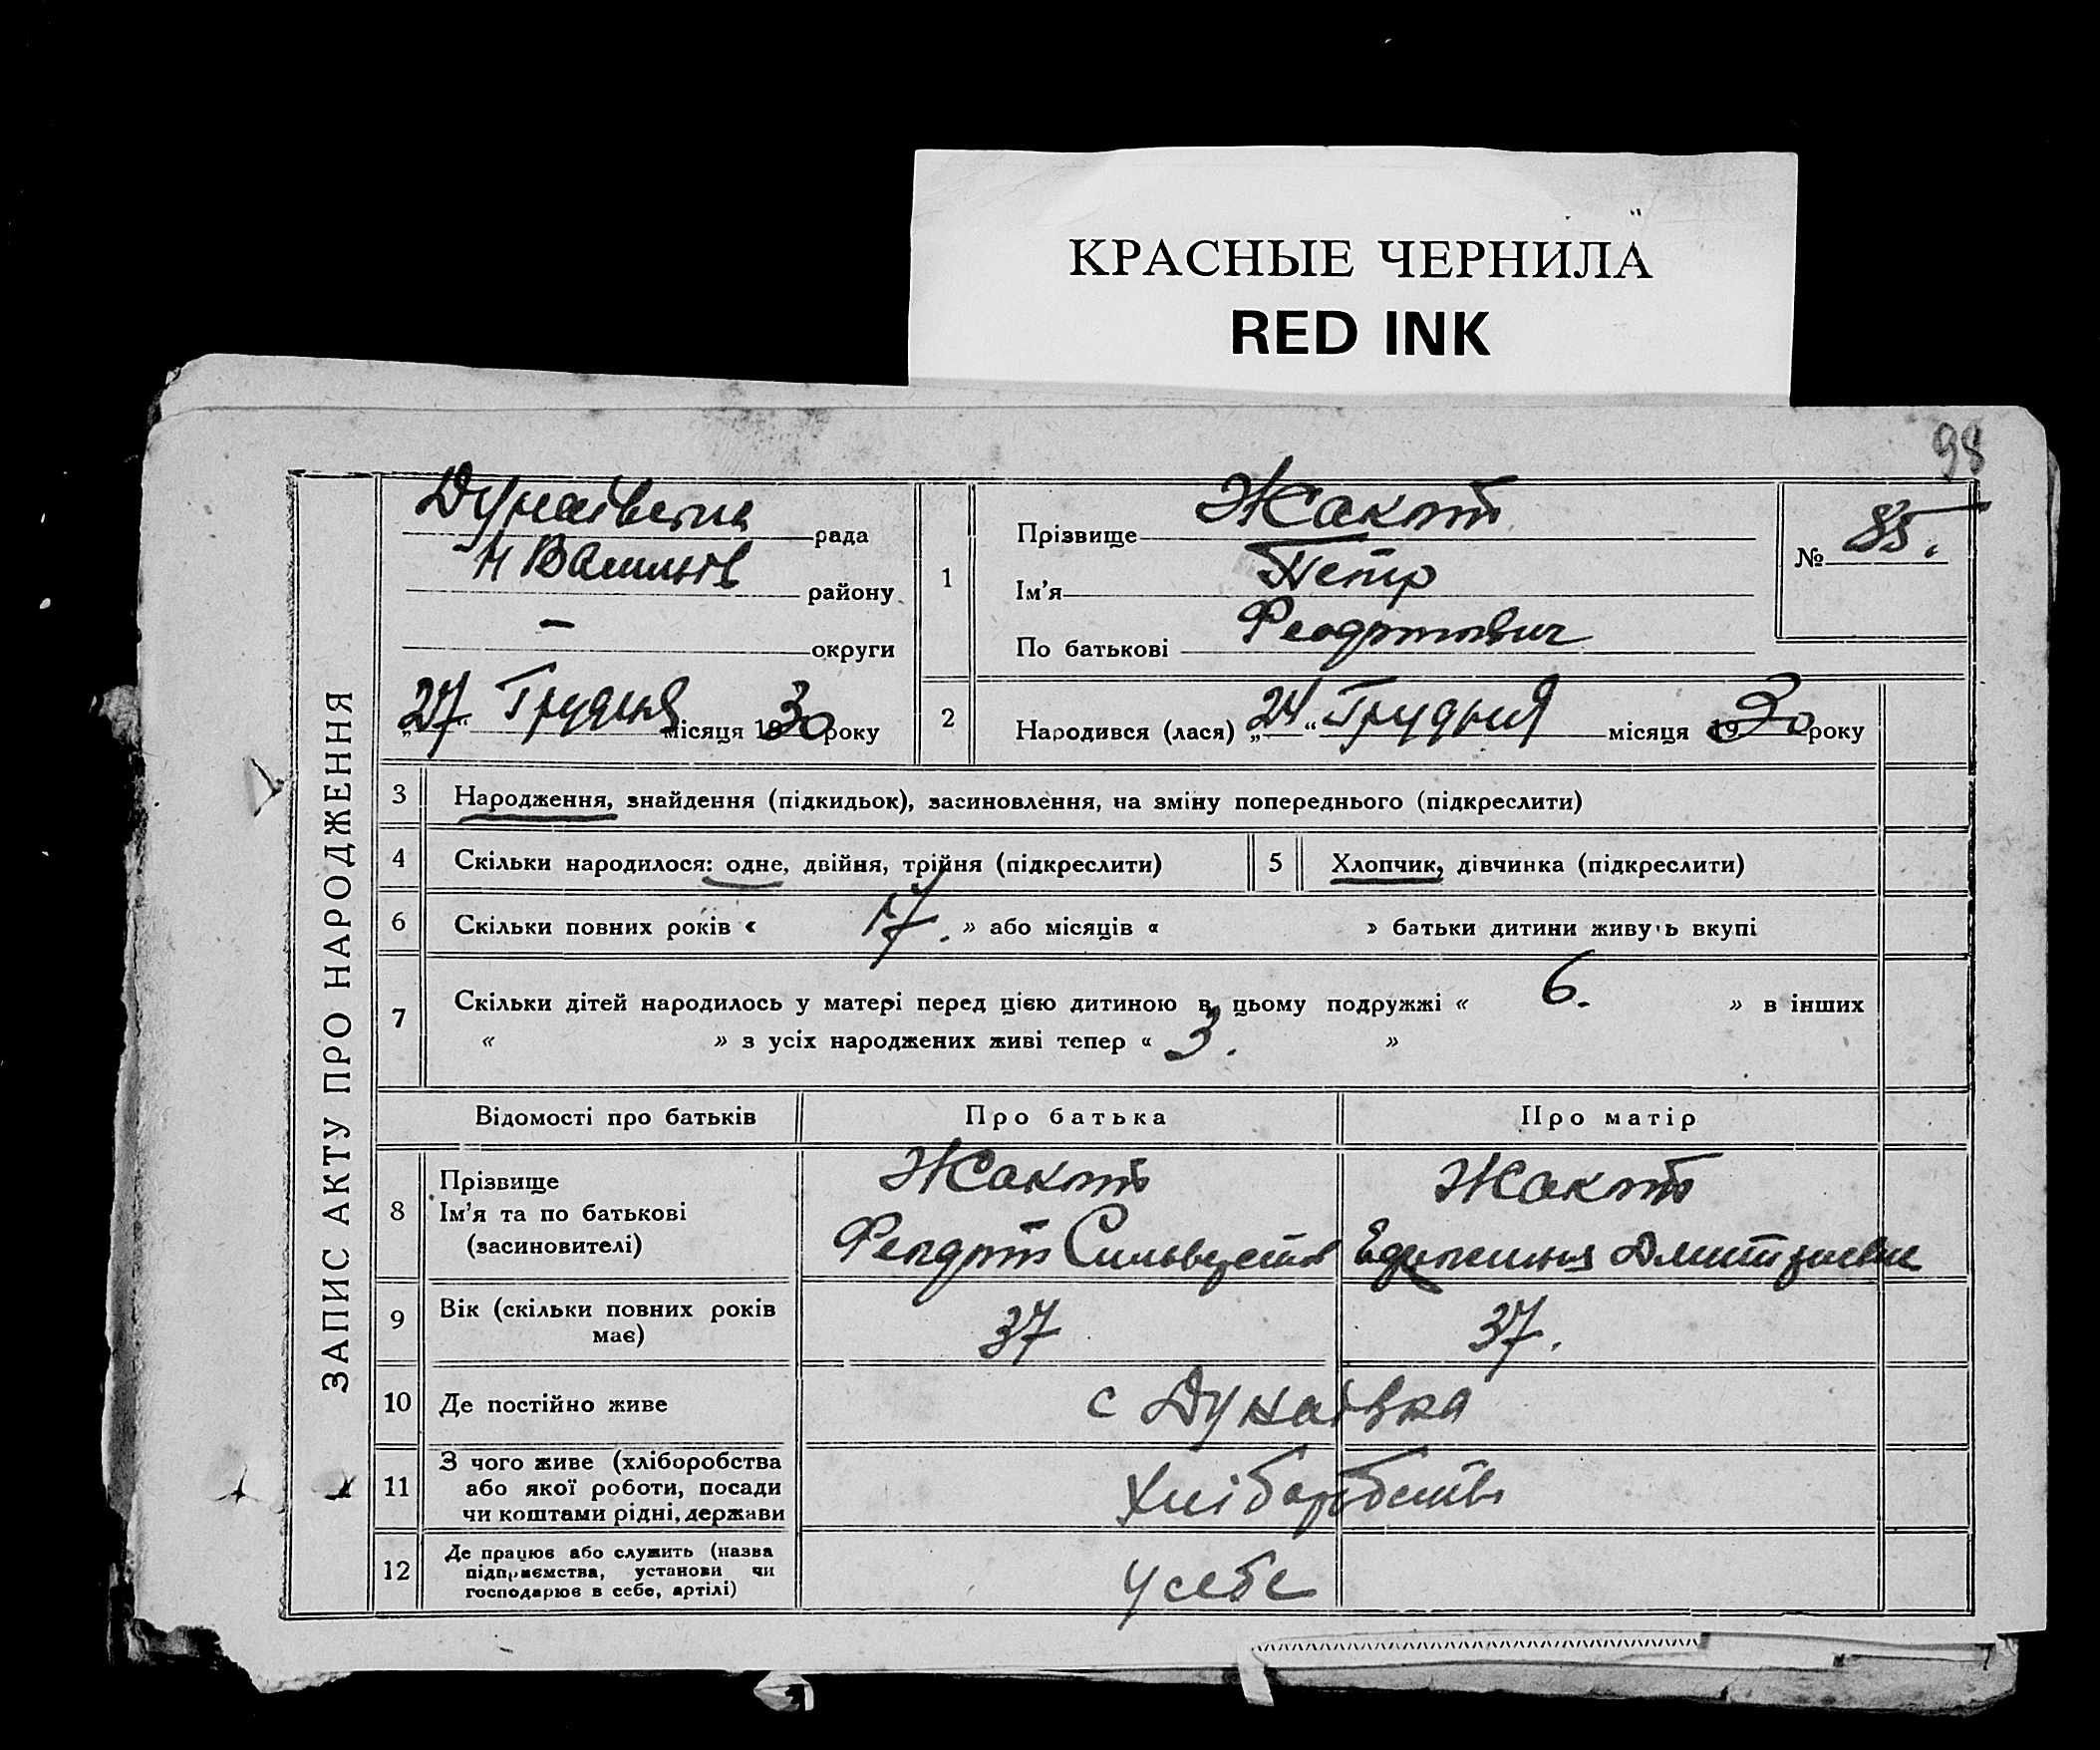 КРАСНЫЕ ЧЕРНИЛА
RED INK
98
ЗАПИС АКТУ ПРО НАРОДЖЕННЯ
рада
Н Василів району
— округи
„27“ Грудня місяця 1930 року
1 Прізвище Жакот
Ім'я Петр
По батькові Феодотович
№ 85.
2 Народився (лася) „24“ Грудня місяця 1930 року
3 Народження, знайдення (підкидьок), засиновлення, на зміну попереднього (підкреслити)
4 Скільки народилося: одне, двійня, трійня (підкреслити)
5 Хлопчик, дівчинка (підкреслити)
6 Скільки повних років « 17. » або місяців « » батьки дитини живуть вкупі
7 Скільки дітей народилось у матері перед цією дитиною в цьому подружжі « 6. » в інших
« » з усіх народжених живі тепер « 3. »
Відомості про батьків Про батька Про матір
8 Прізвище
Ім'я та по батькові
(засиновителі)
Жакот
Феодот
Жакот
9 Вік (скільки повних років
має)
37
37.
10 Де постійно живе
с Дунаівка
11 З чого живе (хліборобства
або якої роботи, посади
чи коштами рідні, держави
Хліборобств
12 Де працює або служить (назва
підприємства, установи чи
господарює в себе, артілі)
У себе